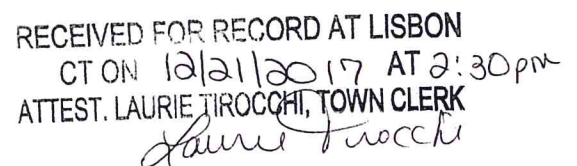 RECEIVED FOR RECORD AT LISBON
CT ON 12/21/2017 AT 2:30pm
ATTEST. LAURIE TIROCCHI, TOWN CLERK
Laurie Tirocchi